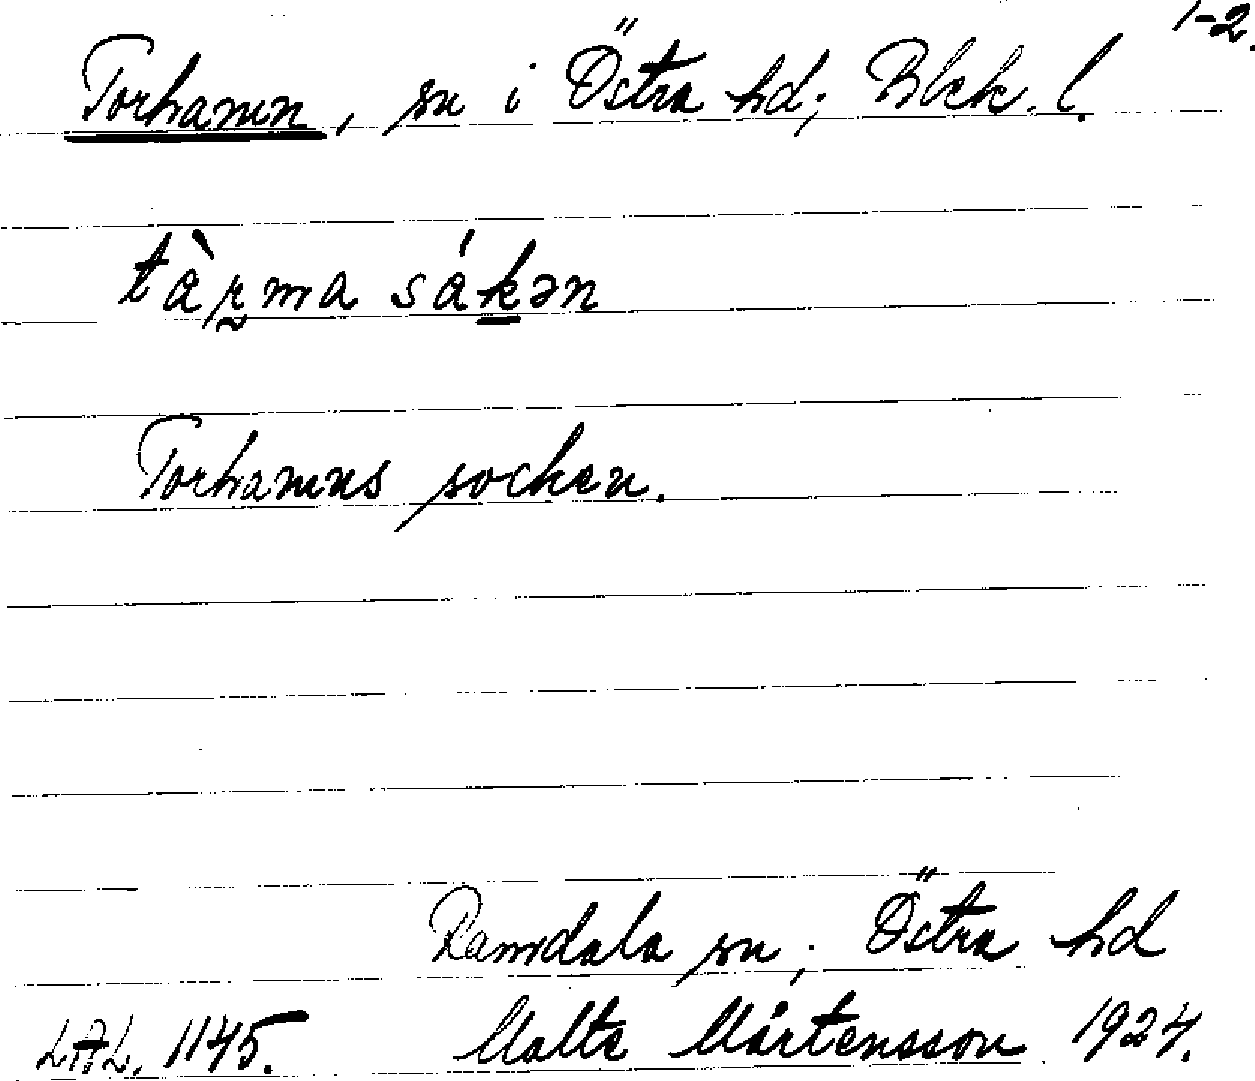 1-2.
Torhamn, sn i Östra hd; Blek. l.
tàr̰ma sák̲ən
Torhamns socken.
Ramdala sn; Östra hd
LAL. 1145. Malte Mårtensson 1924.